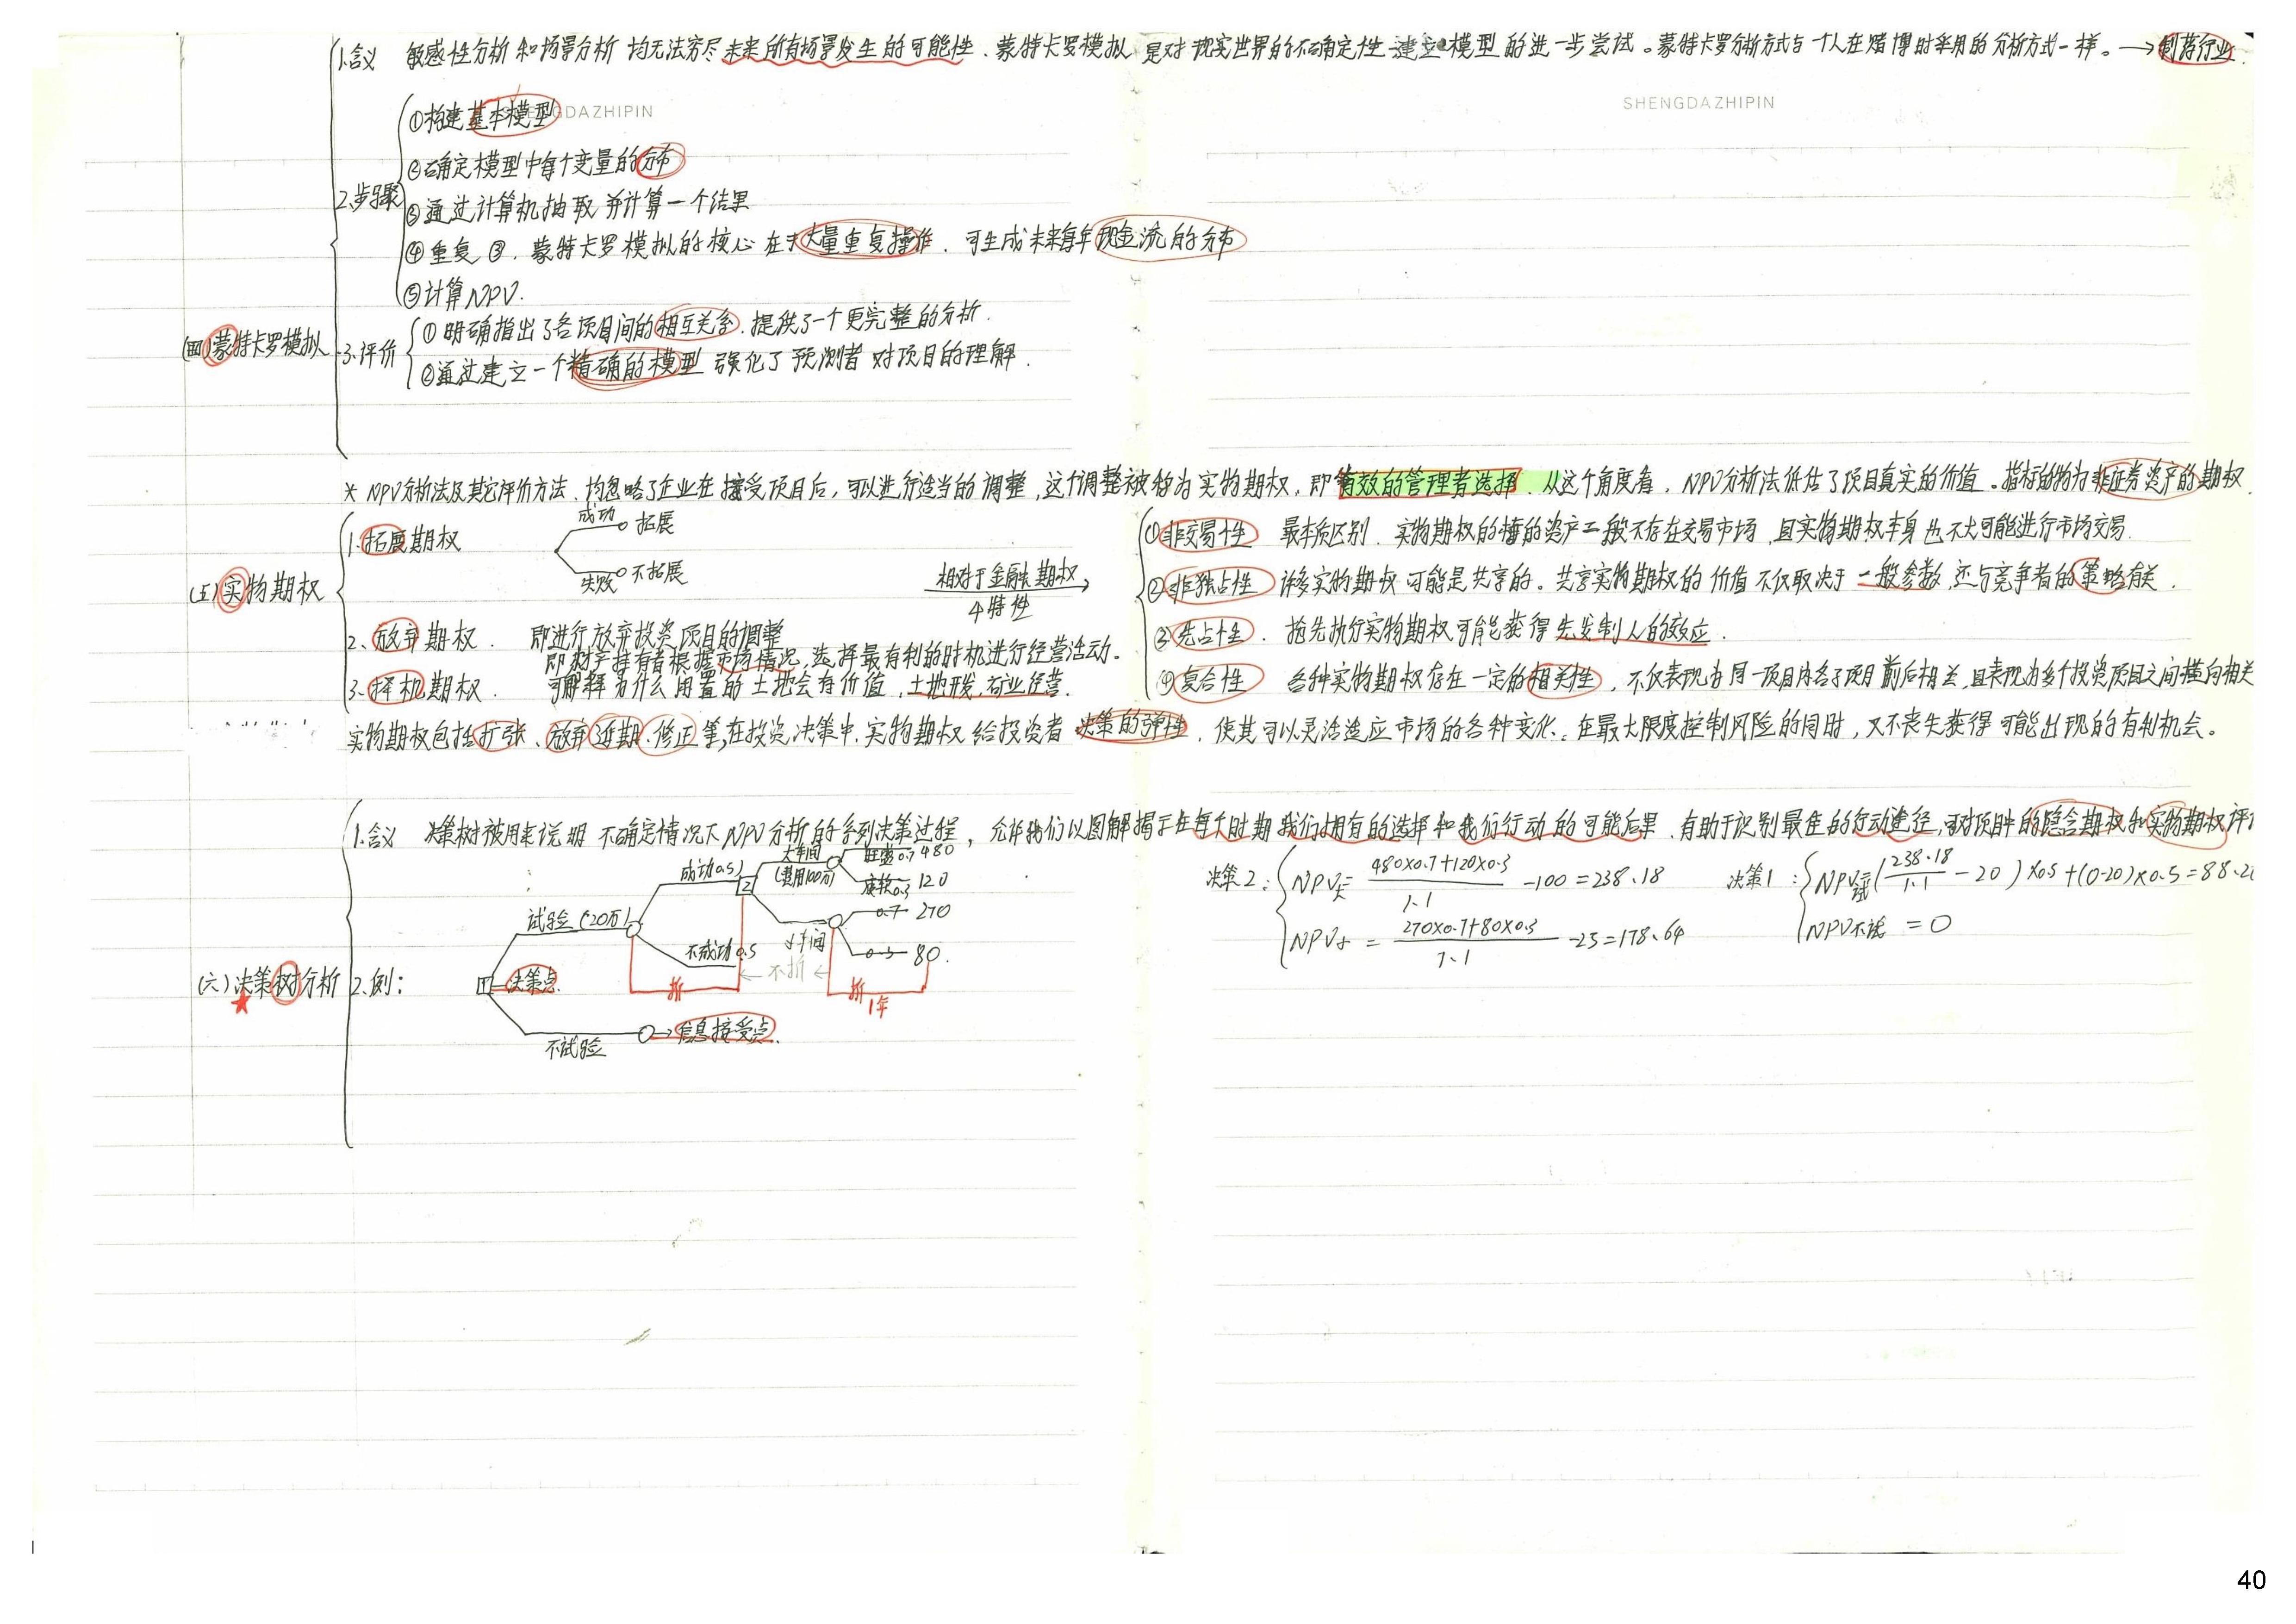 1.含义 敏感性分析和场景分析均无法穷尽未来所有场景发生的可能性、蒙特卡罗模拟是对现实世界的不确定性建立模型的进一步尝试。蒙特卡罗分析方式与一个人在赌博时采用的分析方式一样。→制药行业
SHENGDAZHIPIN
①构建基本模型
②确定模型中每个变量的分布
2.步骤
③通过计算机抽取并计算一个结果
④重复③.蒙特卡罗模拟的核心在于大量重复操作.可生成未来每年现金流的分布
⑤计算NPV.
(四)蒙特卡罗模拟
3.评价
①明确指出了各项目间的相互关系.提供了一个更完整的分析.
②通过建立一个精确的模型强化了预测者对项目的理解.
* NPV分析法及其它评价方法、均忽略了企业在接受项目后,可以进行适当的调整,这个调整被称为实物期权,即有效的管理者选择.从这个角度看,NPV分析法低估了项目真实的价值。指标的物为非证券资产的期权
(五)实物期权
1.拓展期权
成功 拓展
失败 不拓展
2、放弃期权. 即进行放弃投资项目的调整
3、择机期权. 即财产持有者根据市场情况,选择最有利的时机进行经营活动.
可解释为什么闲置的土地会有价值,土地开发,矿业经营.
相对于金融期权
4特性
①非交易性 最本质区别.实物期权的标的资产一般不存在交易市场,且实物期权本身也不大可能进行市场交易.
②非独占性 许多实物期权可能是共享的。共享实物期权的价值不仅取决于一般参数,还与竞争者的策略有关.
③先占性.抢先执行实物期权可能获得先发制人的效应.
④复合性 各种实物期权存在一定的相关性,不仅表现为同一项目内各子项目前后相关,且表现为多个投资项目之间横向相关
实物期权包括扩张、放弃、延期、修正等,在投资决策中.实物期权给投资者决策的弹性,使其可以灵活适应市场的各种变化.在最大限度控制风险的同时,又不丧失获得可能出现的有利机会。
(六)决策树分析
1.含义 决策树被用来说明不确定情况下NPV分析的系列决策过程,允许我们以图解揭示在每个时期我们拥有的选择和我们行动的可能后果.有助于识别最佳的行动途径,可对项目中的隐含期权和实物期权评
2.例:
1 决策点
试验(20万)
成功(0.5)
2
大车间
(费用100万)
旺盛0.7 480
疲软0.3 120
小车间
0.7 270
0.3 80.
不成功0.5
折
←不折←
折
1年
不试验
→信息接受点.
决策2: NPV大= 480×0.7+120×0.3 / 1.1 -100=238.18
NPV小= 270×0.7+80×0.3 / 1.1 -25=178.64
决策1: NPV试=(238.18 / 1.1 -20)×0.5+(0-20)×0.5=88.2
NPV不试=0
SHENGDAZHIPIN
40